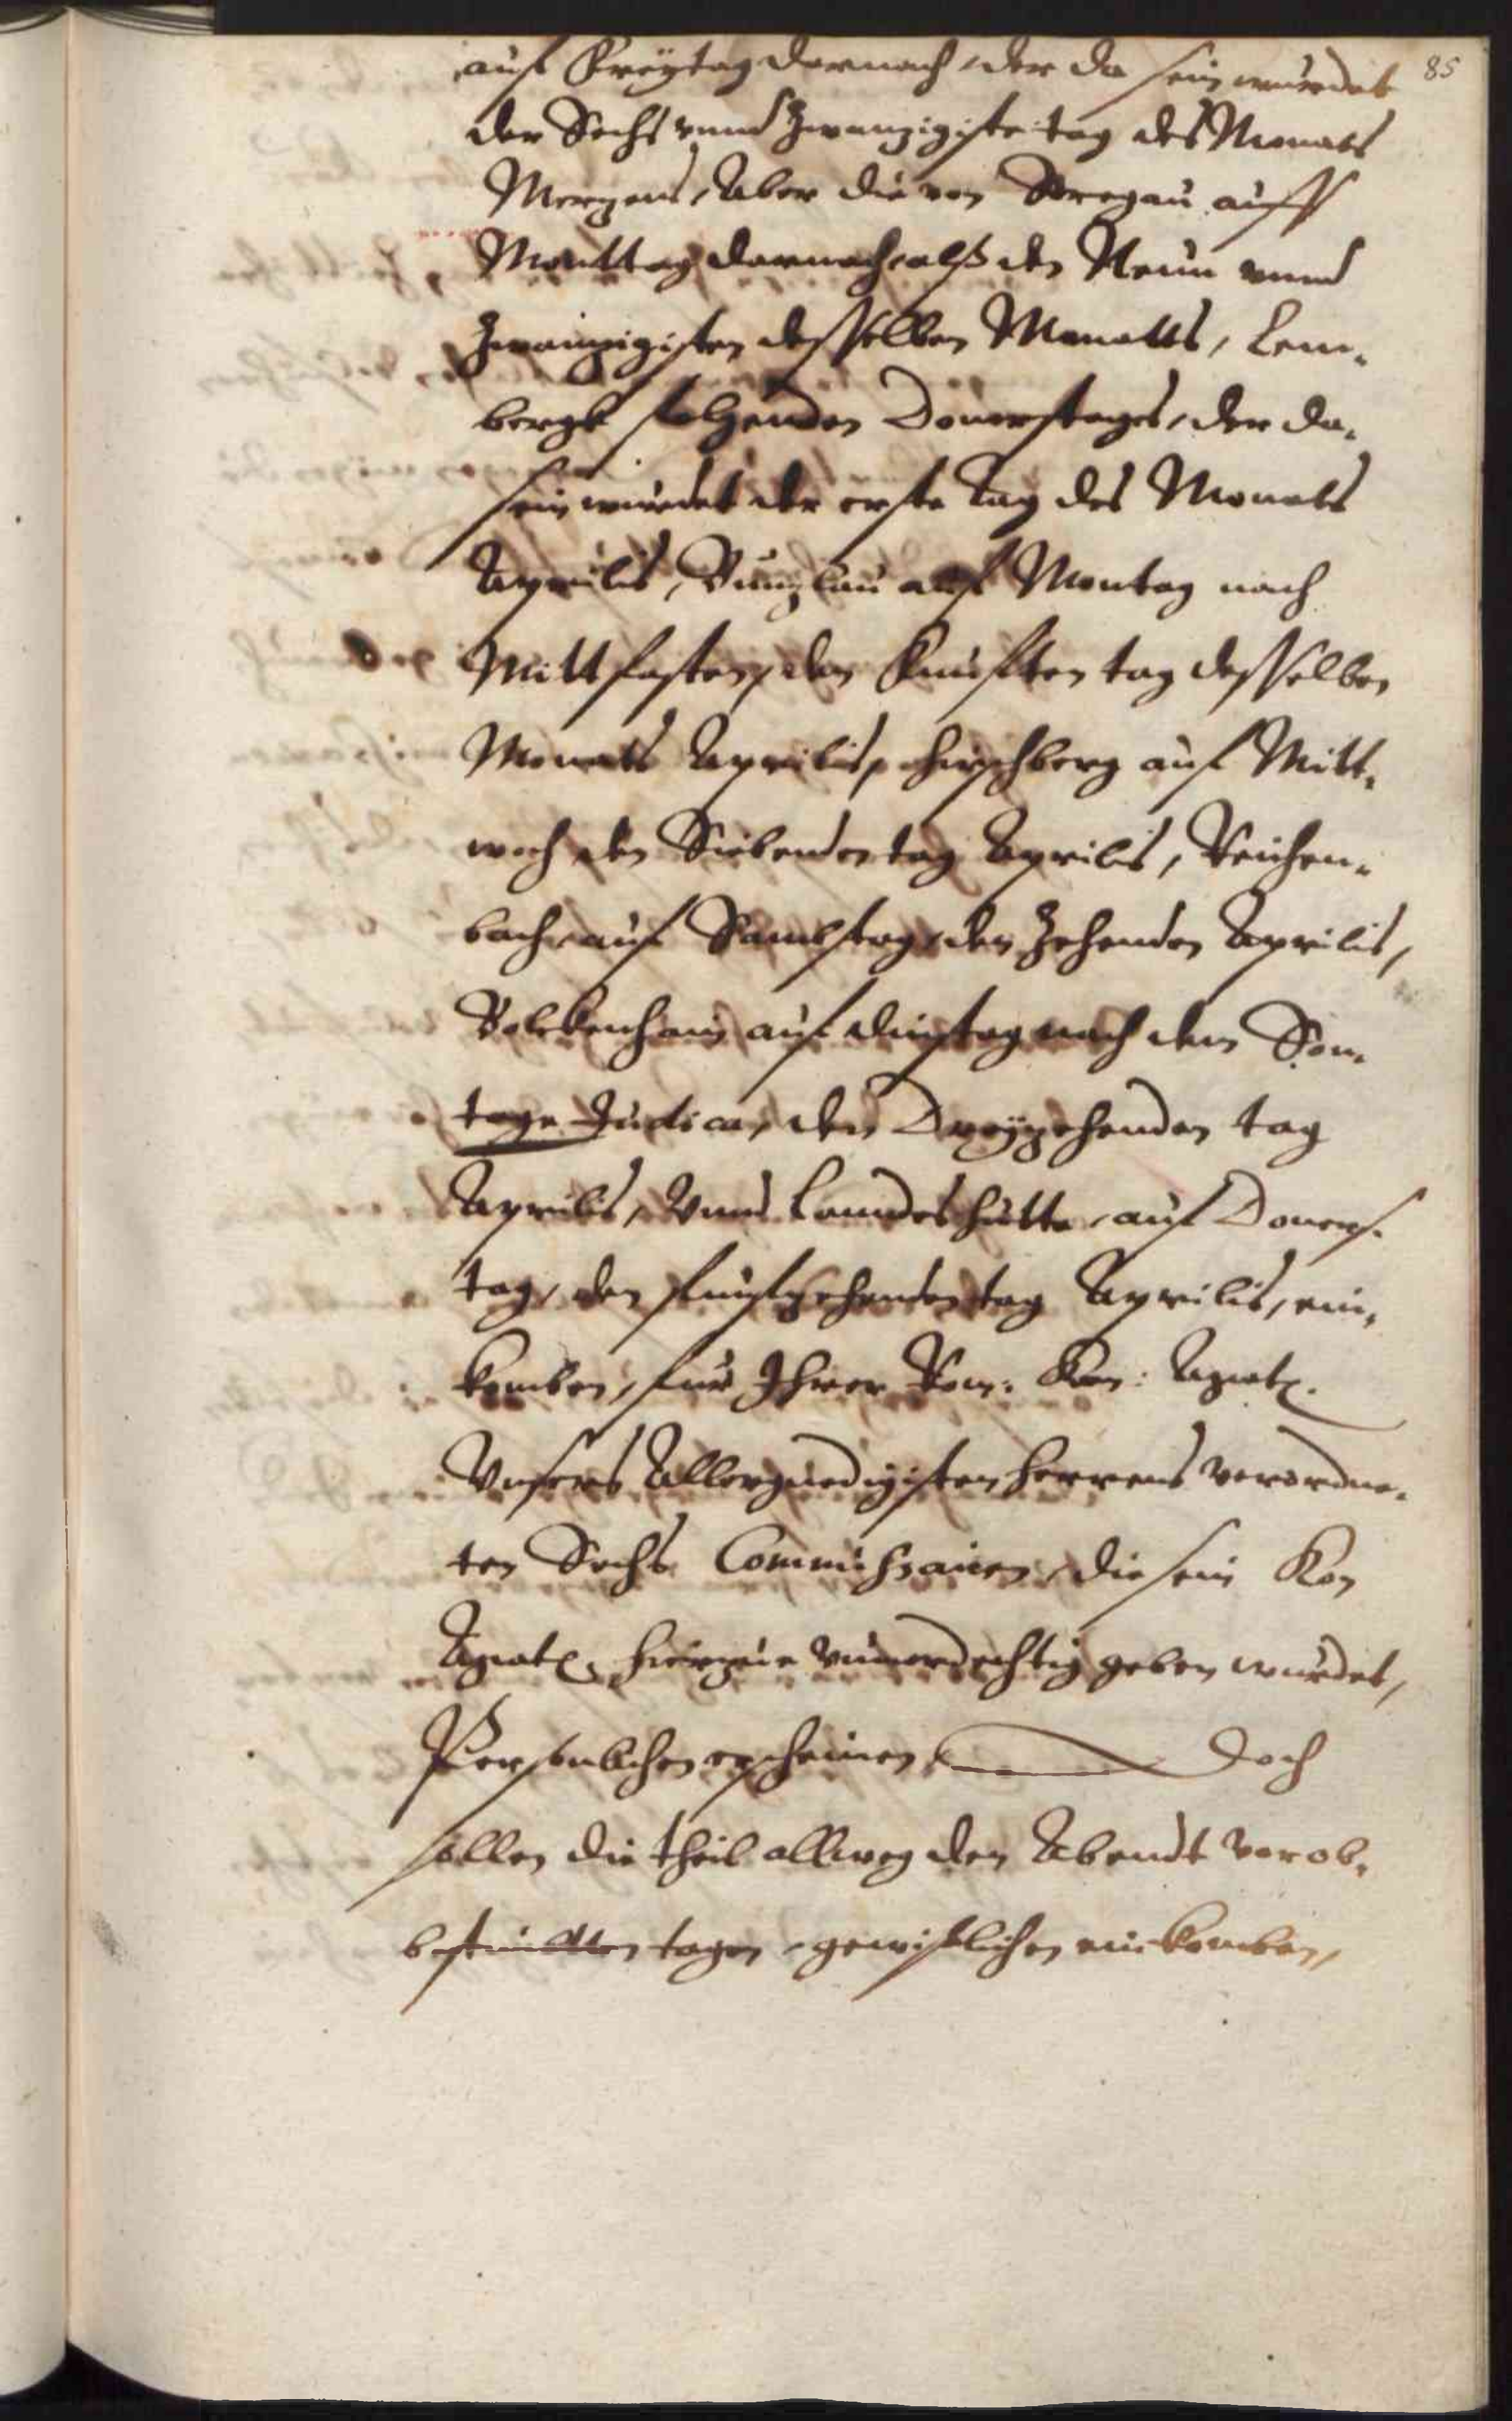 85
auf Freytag darnach, der da sein wuerdet
der Sechs vnnd Zwanzigiste tag des Monats
Mertzens, Aber die von Stregau auff
Monttag darnach, alß den Neun vnnd
Zwainzigisten desselben Monatts, Lem-
bergk folgenden Donerstages, der da
sein wuerdet der erste Tag des Monats
Aprilis, Buntzlau auf Montag nach
Mittfasten, den Funfften tag desselben
Monats Aprilis, Hirschberg auf Mitt-
woch den Siebenden tag Aprilis, Reichen-
bach, auf Sambstag, den Zehenden Aprilis,
Bolckenhain auf dinstag nach dem Son-
tage Judica, den Dreyzehenden tag
Aprilis, Vnnd Lanndeshutte, auf Doners-
tag, den funfzehenden tag Aprilis, ein-
komben, fur Ihrer Rom: Kon: Mgatt.
Vnsers Allergnedigisten Herrens verordne-
ten Sechs Commissarien, die sein Kon
Mgatt. hierzue vnuerdechtig geben wurdet,
Personlichen erscheinen, Doch
sollen die theil allweg den Abendt vor ob-
bestimbtten tagen, gewißlichen einkomben,